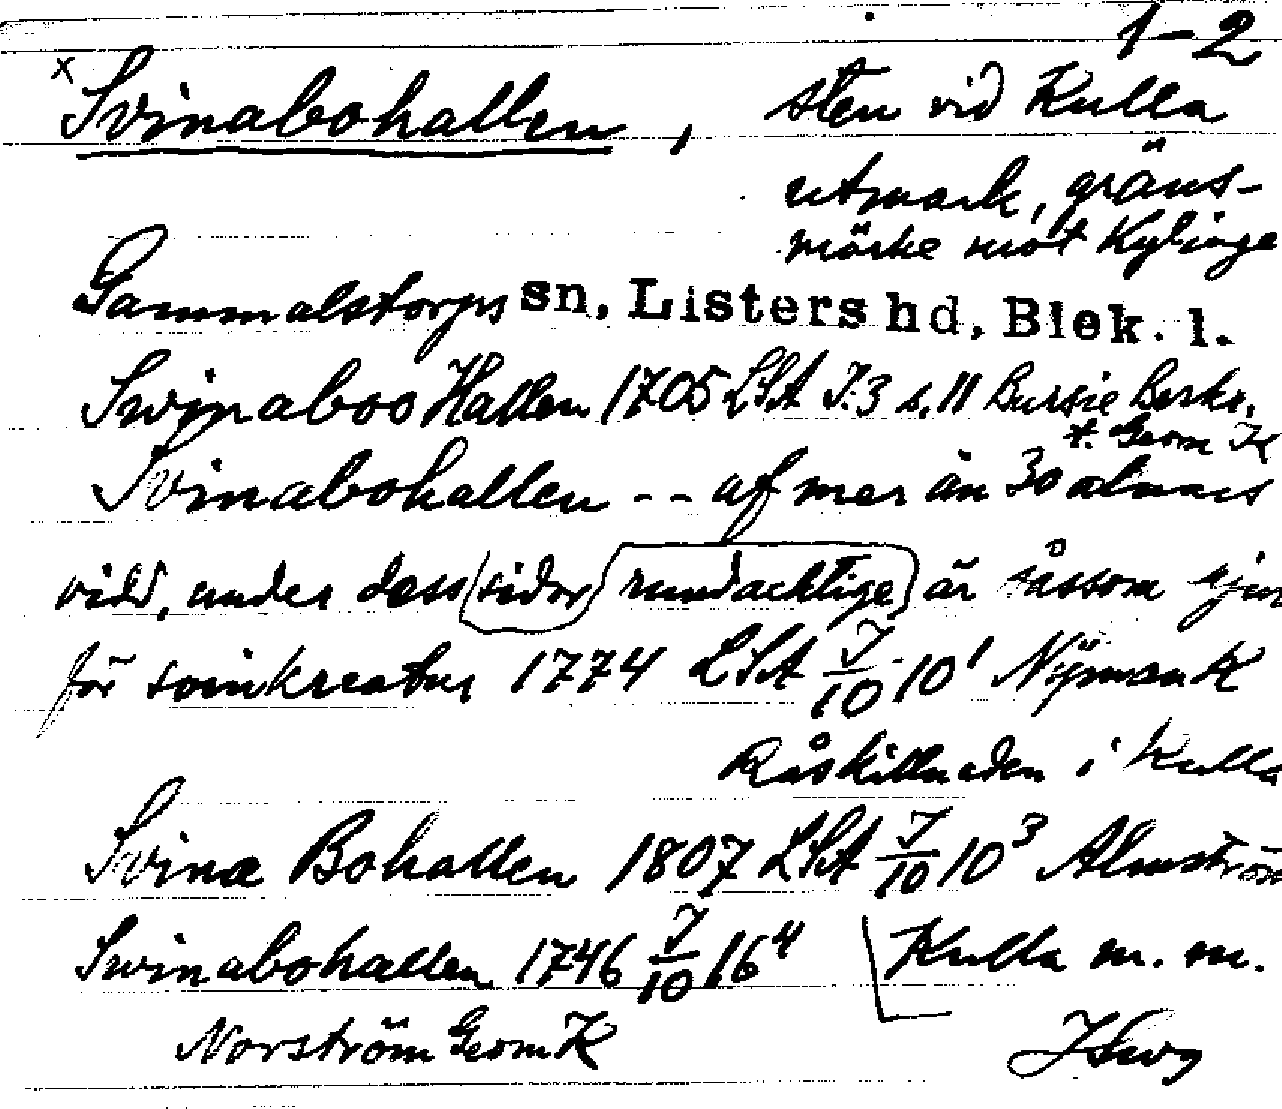 1-2
x Svinabohallen, sten vid Kulla
utmark, gräns-
märke mot Kylinge
Gammalstorps sn, Listers hd, Blek. l.
Swinaboo Hallen 1705 LSA J:3 s. 11 Bursie Berkr.
t. Geom K
Svinabohallen -- af mer än 30 alnars
vidd, under dess (sidor) (rundachtige) är såssom
för svinkreatur 1774 LSA J/10 10¹ Nÿman K
Råskillnaden i Kulla
Svina Bohallen 1807 LSA J/10 10³ Almström
Swinabohallen 1746 J/10 16⁴ Kulla m. m.
Norström Geom K